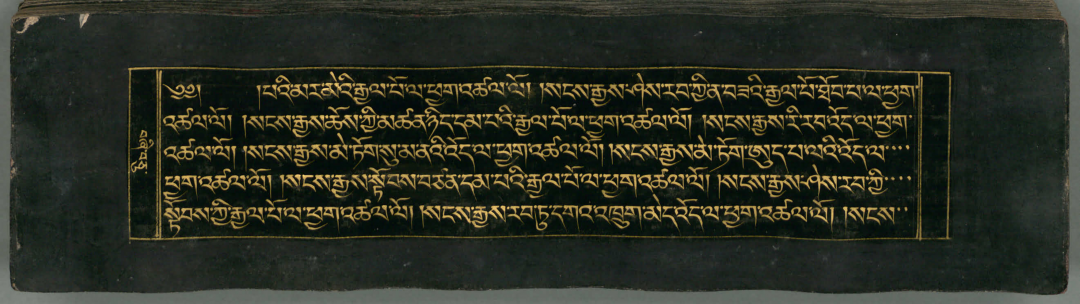 ༄༅། །པའི་མར་མེའི་རྒྱལ་པོ་ལ་ཕྱག་འཚལ་ལོ། །སངས་རྒྱས་ཤེས་རབ་ཀྱི་ན་བཟའི་རྒྱལ་པོ་ཐོབ་པ་ལ་ཕྱག་
འཚལ་ལོ། །སངས་རྒྱས་ཆོས་ཀྱི་མཚན་ཉིད་དམ་པའི་རྒྱལ་པོ་ལ་ཕྱག་འཚལ་ལོ། །སངས་རྒྱས་རི་རབ་འོད་ལ་ཕྱག་
འཚལ་ལོ། །སངས་རྒྱས་མེ་ཏོག་སུ་མ་ནའི་འོད་ལ་ཕྱག་འཚལ་ལོ། །སངས་རྒྱས་མེ་ཏོག་ཨུད་པ་ལའི་འོད་ལ་
ཕྱག་འཚལ་ལོ། །སངས་རྒྱས་སྟོབས་བཙན་དམ་པའི་རྒྱལ་པོ་ལ་ཕྱག་འཚལ་ལོ། །སངས་རྒྱས་ཤེས་རབ་ཀྱི་
སྟོབས་ཀྱི་རྒྱལ་པོ་ལ་ཕྱག་འཚལ་ལོ། །སངས་རྒྱས་རབ་ཏུ་དགའ་བ་འཁྲུག་མེད་འོད་ལ་ཕྱག་འཚལ་ལོ། །སངས་